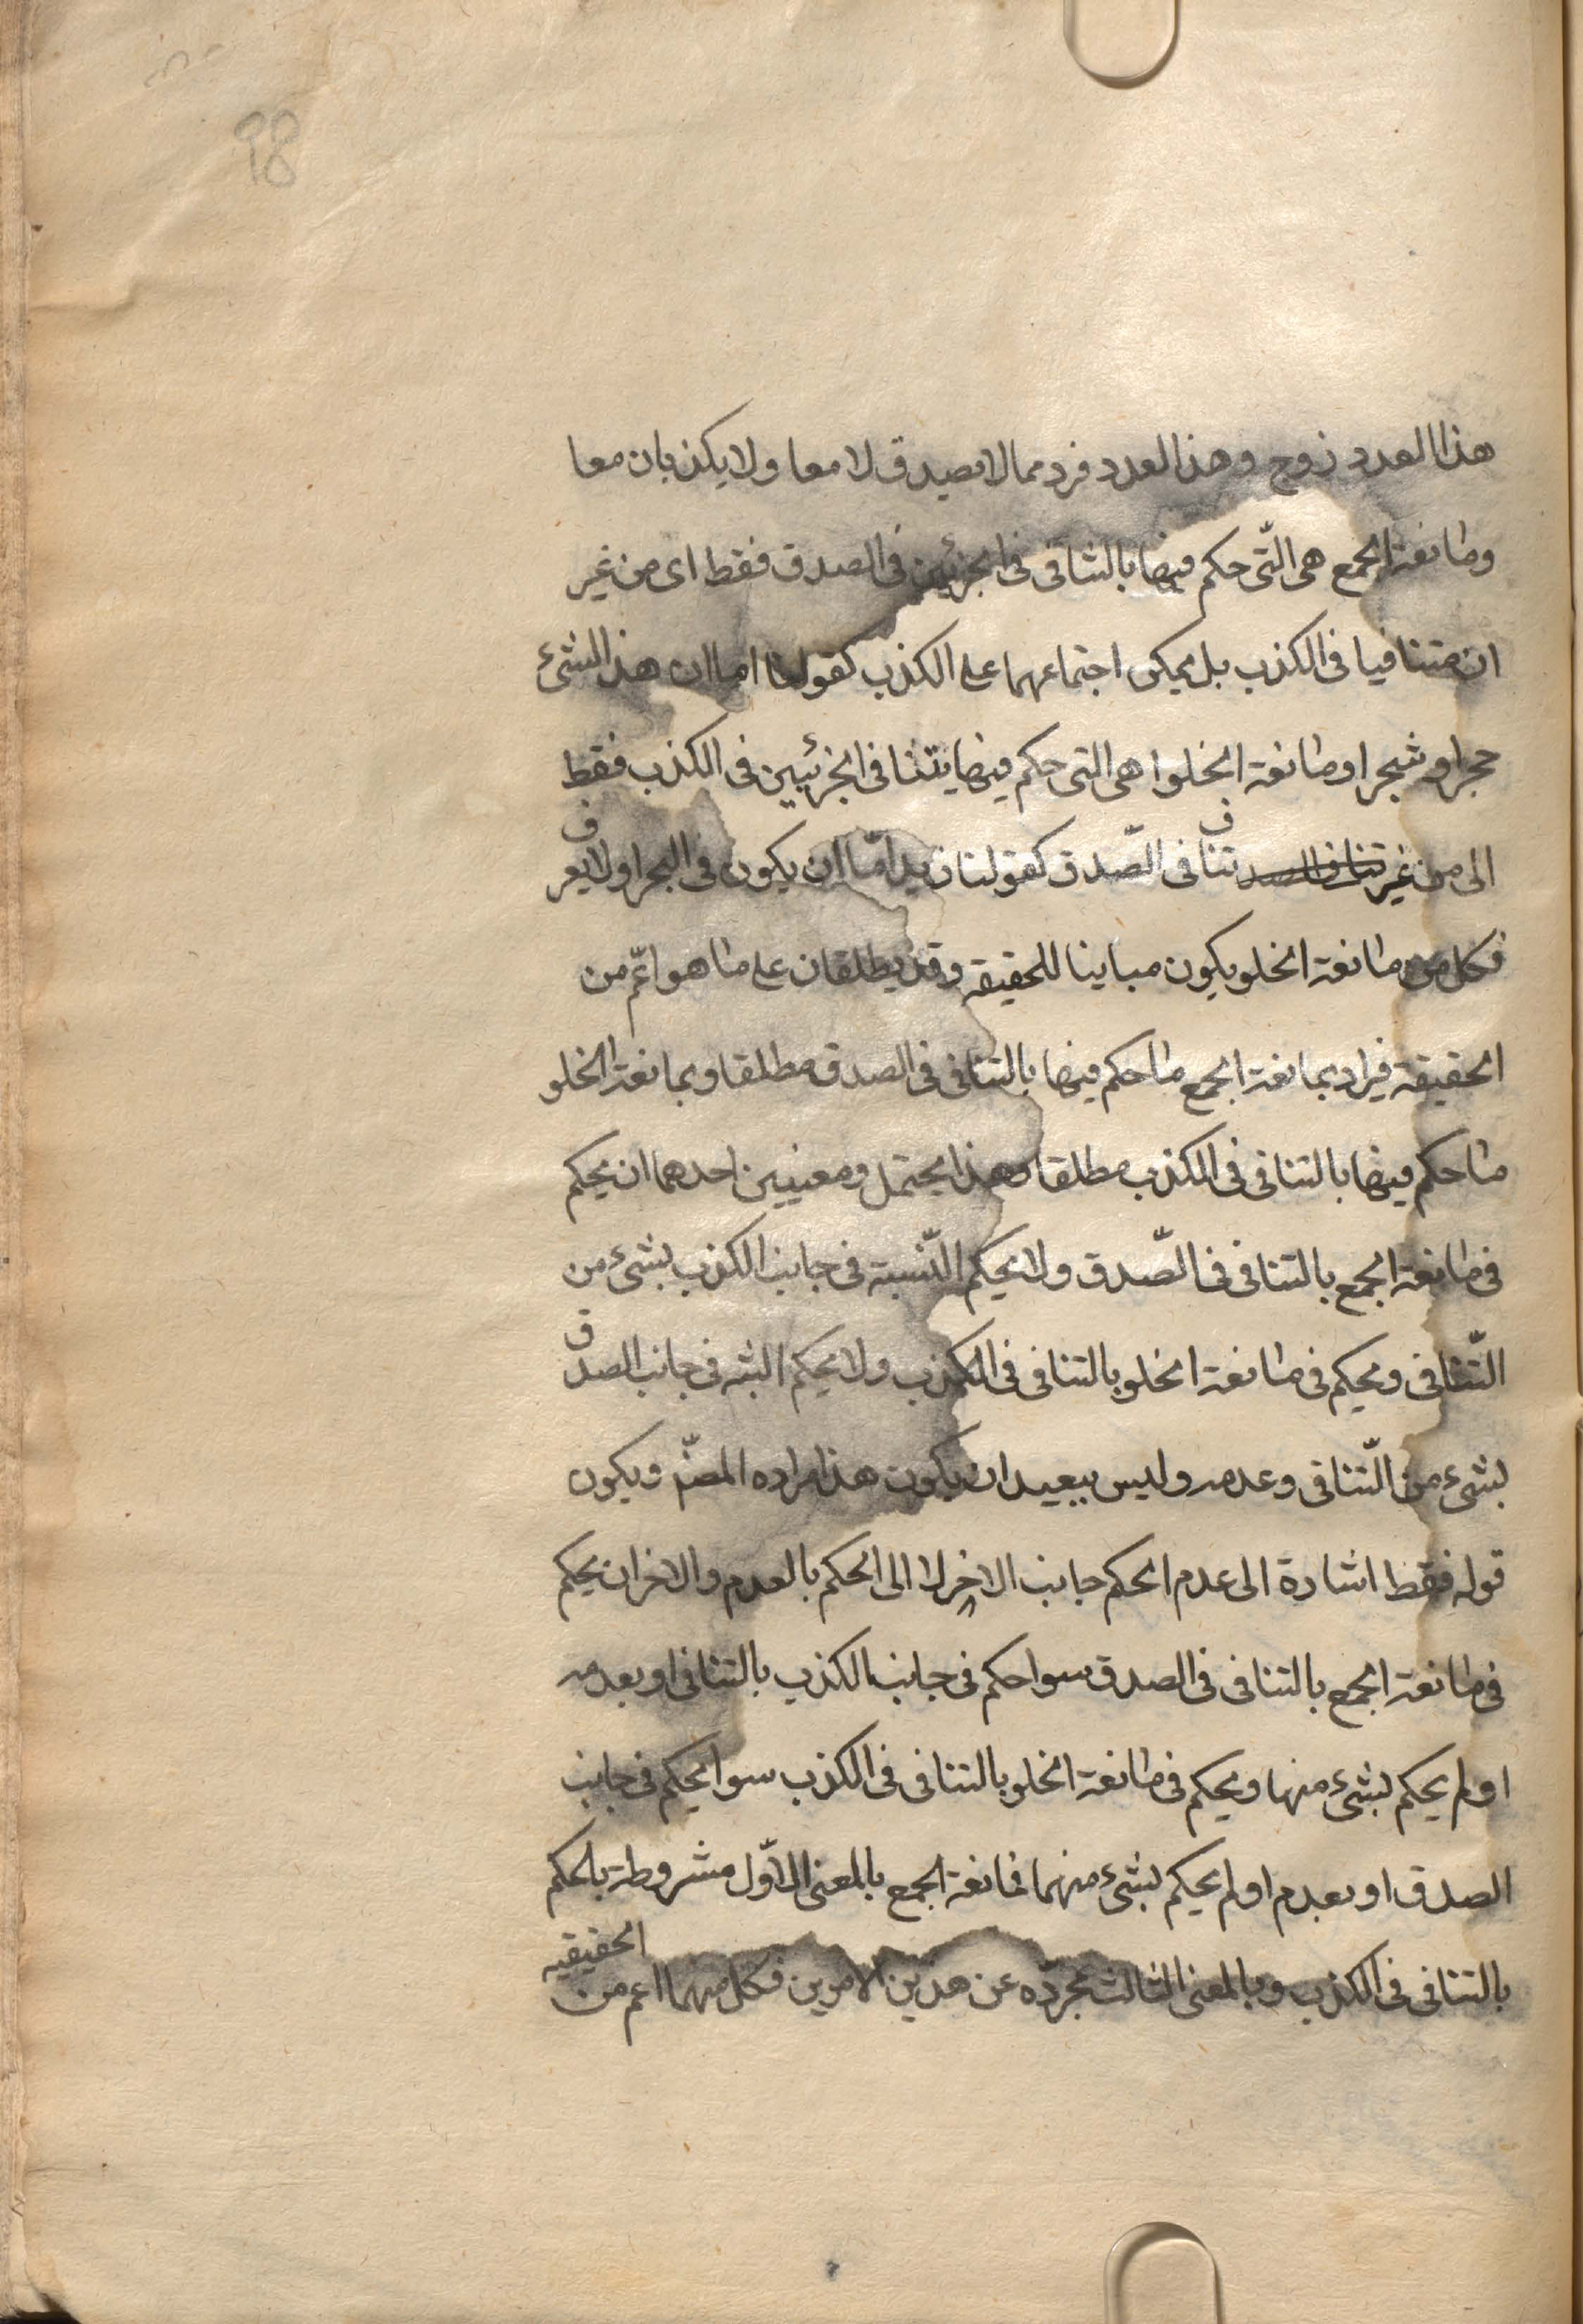 98
هذا العدد زوج وهذا العدد فرد مما لا يصدق لا معا ولا يكذبان معا
ومانعة الجمع هى الّتى حكم فيها بالتنافى فى الجزئين فى الصدق فقط اى من غير
ان يتنافيا فى الكذب بل يمكن اجتماعهما على الكذب كقولنا اما ان هذا الشئ
حجرا و شجرا ومانعة الخلوا هى التى حكم فيها يتنافى الجزئيين فى الكذب فقط
الى من غير تنافى الصد تنافى الصّدق كقولنا زيد امّا ان يكون فى البحر اولا يغرق
فكل من مانعة الخلو يكون مباينا للحقيقة وقد يطلقان على ما هو اعّم من
الحقيقة فيراد بمانعة الجمع ما حكم فيها بالتنافى فى الصدق مطلقا وبمانعة الخلو
ما حكم فيها بالتنافى فى الكذب مطلقا وهذا يحتمل ومعنيين احدهما ان يحكم
فى مانعة الجمع بالتنافى فى الصّدق ولا يحكم النّسبة فى جانب الكذب بشئ من
التّنافى ويحكم فى مانعة الخلو بالتنافى فى الكذب ولا يحكم البته فى جانب الصدق
بشئ من التّنافى وعدمه وليس ببعيد ان يكون هذا مراده المصّ ويكون
قوله فقط اشارة الى عدم الحكم جانب الاخر لا الى الحكم بالعدم والاخر ان يحكم
فى مانعة الجمع بالتنافى فى الصدق سوا حكم فى جانب الكذب بالتنافى او بعدمه
او لم يحكم بشئ منها ويحكم فى مانعة الخلو بالتنافى فى الكذب سوا يحكم فى جانب
الصدق او بعدم او لم يحكم بشئ منهما فمانعة الجمع بالمعنى الاوّل مشروطة بالحكم
بالتنافى فى الكذب وبالمعنى الثالث مجردّه عن هذين الامرين فكل منهما اعم من الحقيقيه